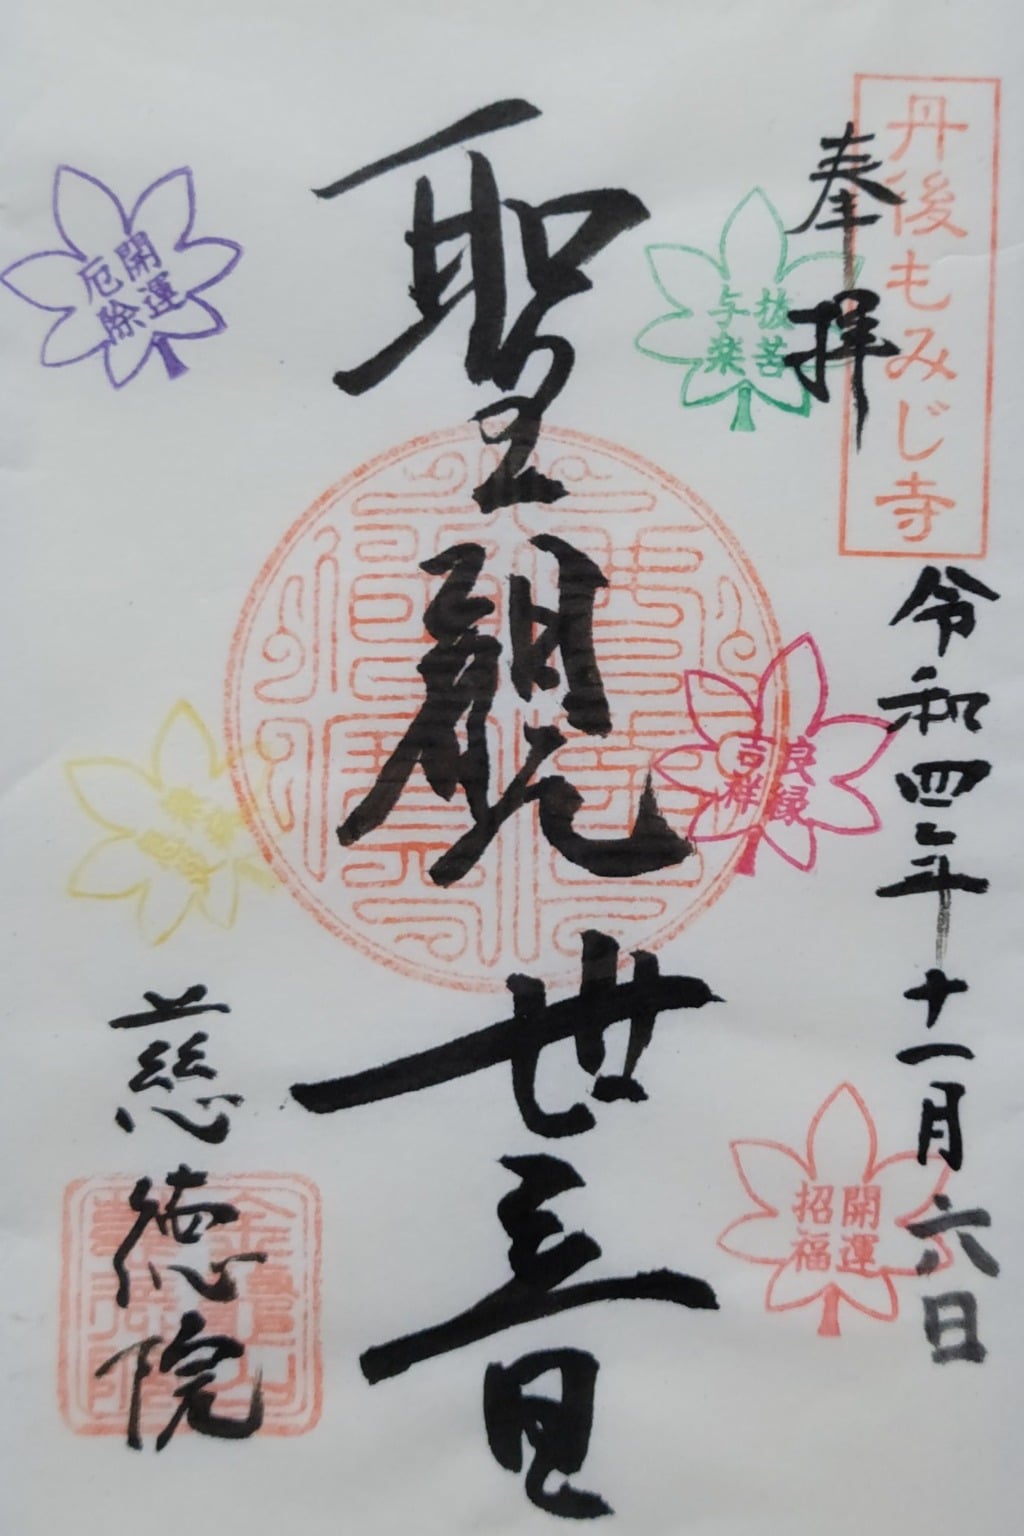 丹後もみじ寺
奉拝
令和四年十一月六日
抜苦
与楽
良縁
吉祥
開運
招福
聖観世音
開運
厄除
慈徳院